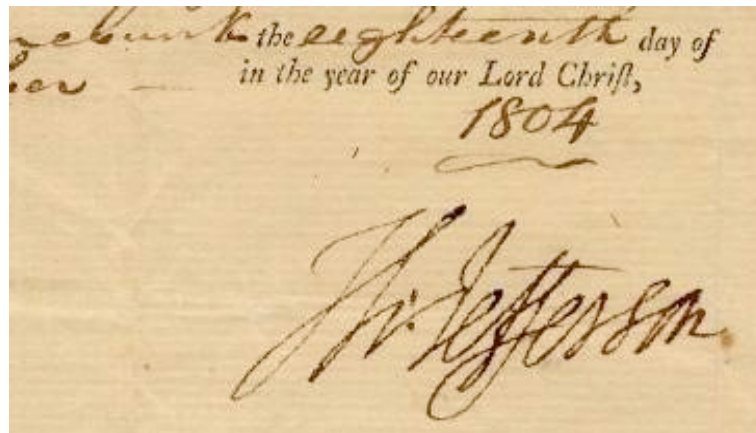 the eighteenth day of
in the year of our Lord Chriſt,
1804
Th: Jefferson